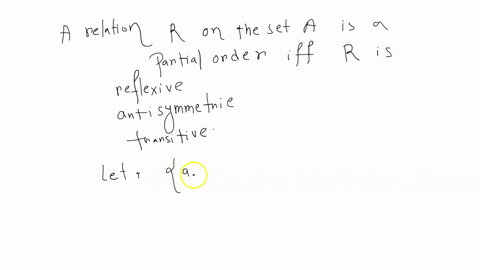 A relation R on the set A is a
Partial order iff R is
reflexive
antisymmetric
transitive.
let, {a.